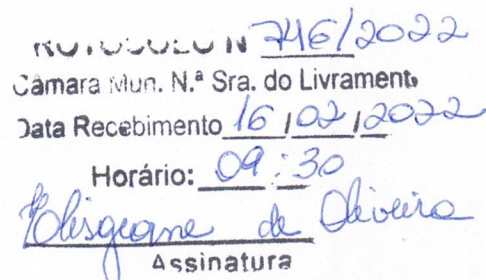 PROTOCOLO N 746/2022
Câmara Mun. N.ª Sra. do Livramento
Data Recebimento 16/02/2022
Horário: 09:30
Elisgeane de Oliveira
Assinatura